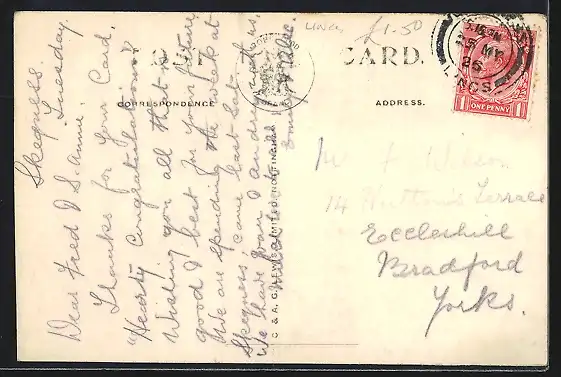 Lincs £1.50
POST CARD.
CORRESPONDENCE
ADDRESS.
Skegness.
Tuesday.
Dear Fred & S. Annie.
Thanks for your Card.
"Hearty Congratulations"
Wishing you all that is
good & best for your future
We are spending the week at
Skegness, came last Sat.
We have gran & an dry with us,
C & A. G. LEWIS, LIMITED, NOTTINGHAM
Mr F Wilson
14 Hutton's Terrace
Eccleshill
Bradford
Yorks.
5 MY
26
LINCS
ONE PENNY